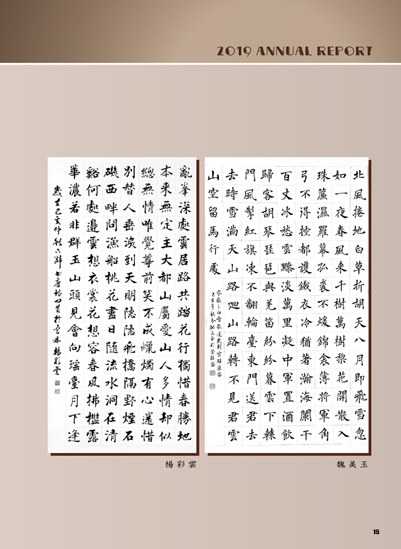 2019 ANNUAL REPORT
北風捲地白草折胡天八月即飛雪忽
如一夜春風來千樹萬樹梨花開散入
珠簾濕羅幕狐裘不煖錦衾薄將軍角
弓不得控都護鐵衣冷猶著瀚海闌干
百丈冰愁雲黲淡萬里凝中軍置酒飲
歸客胡琴琵琶與羌笛紛紛暮雪下轅
門風掣紅旗凍不翻輪臺東門送君去
去時雪滿天山路迴山路轉不見君雪
山空留馬行處
魏美玉
亂峯深處雲居路共踏花行獨惜春勝地
本來無定主大都山屬愛山人多情却似
總無情唯覺尊前笑不成蠟燭有心還惜
別替人垂淚到天明隱隱飛橋隔野煙石
磯西畔問漁船桃花盡日隨流水洞在清
谿何處邊雲想衣裳花想容春風拂檻露
華濃若非群玉山頭見會向瑤臺月下逢
楊彩雲
15